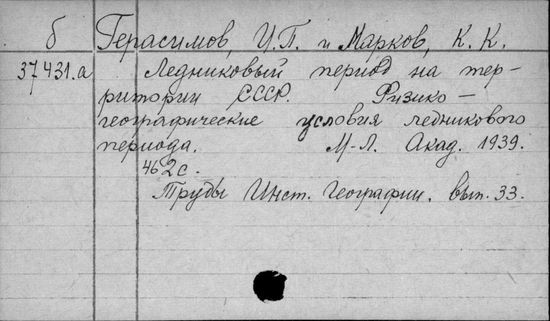 б Герасимов, И.П. и Марков, К. К.
37431.а Ледниковый период на тер-
ритории СССР. Физико-
географические условия ледникового
периода. М-Л. Акад. 1939.
462 с.
Труды Инст. Географии. вып. 33.